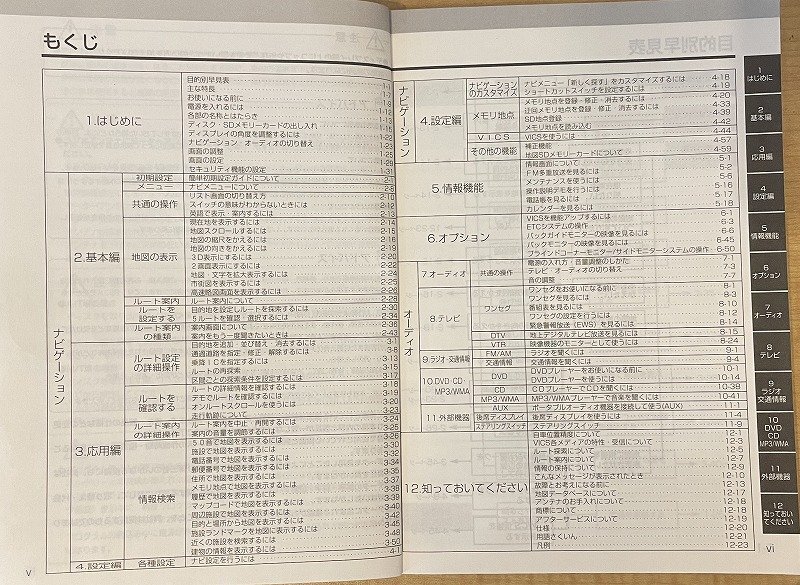 もくじ
1.はじめに
目的別早見表
主な特長 1-1
お使いになる前に
電源を入れるには
各部の名称とはたらき
ディスク・SDメモリーカードの出し入れ
ディスプレイの角度を調整するには
ナビゲーション オーディオの切り替え
画面の調整
画面の設定
セキュリティ機能の設定 1-31
ナビゲーション
2.基本編
初期設定
簡単初期設定ガイドについて 2-1
メニュー
ナビメニューについて 2-8
共通の操作
リスト画面の切り替え方 2-10
スイッチの意味がわからないときには 2-12
英語で表示・案内するには 2-13
地図の表示
現在地を表示するには 2-14
地図スクロールするには 2-15
地図の縮尺をかえるには 2-16
地図の向きをかえるには 2-19
3D表示にするには 2-20
2画面表示にするには 2-22
地図・文字を拡大表示するには 2-24
市街図を表示するには 2-25
高速略図画面を表示するには 2-26
ルート案内
ルート案内について 2-28
ルートを設定する
目的地を設定しルートを探索するには 2-30
5ルートを確認・選択するには 2-34
ルート案内の種類
案内画面について 2-36
案内をもう一度聞きたいときは 2-45
3.応用編
ルート設定の詳細操作
目的地を追加・並び替え・消去するには 3-1
通過道路を指定・修正・解除するには 3-8
乗降ICを指定するには 3-13
ルートの再探索
区間ごとの探索条件を設定するには 3-17
ルートを確認する
ルートの詳細情報を確認するには 3-18
デモでルートを確認するには 3-19
オンルートスクロールを使うには 3-20
走行軌跡について
ルート案内の詳細操作
ルート案内を中止・再開するには 3-24
案内の音量を調節するには 3-25
情報検索
50音で地図を表示するには
施設で地図を表示するには 3-30
電話番号で地図を表示するには 3-32
郵便番号で地図を表示するには 3-34
住所で地図を表示するには
メモリ地点で地図を表示するには
履歴で地図を表示するには 3-38
マップコードで地図を表示するには 3-39
周辺施設で地図を表示するには 3-40
目的と場所から地図を表示するには 3-44
施設ランドマークを地図に表示するには 3-45
近くの施設を検索するには 3-48
建物の情報を表示するには 3-50
4.設定編
各種設定
ナビ設定を行うには 4-1
v
目的別早見表
ナビゲーション
4.設定編
ナビゲーションのカスタマイズ
ナビメニュー「新しく探す」をカスタマイズするには 4-18
ショートカットスイッチを設定するには 4-19
メモリ地点
メモリ地点を登録・修正・消去するには 4-20
迂回メモリ地点を登録・修正・消去するには 4-33
SD地点登録 4-39
メモリ地点を読み込む 4-42
VICS
VICSを使うには 4-44
その他の機能
補正機能 4-57
地図SDメモリーカードについて 4-59
5.情報機能
情報画面について 5-1
FM多重放送を見るには 5-2
メンテナンスを使うには 5-6
操作説明デモを行うには 5-16
電話帳を見るには 5-17
カレンダーを見るには 5-18
6.オプション
VICSを機能アップするには 6-1
ETCシステムの操作 6-3
バックガイドモニターの映像を見るには
バックモニターの映像を見るには 6-45
ブラインドコーナーモニター/サイドモニターシステムの操作 6-50
オーディオ
7.オーディオ
共通の操作
電源の入れ方・音量調整のしかた 7-1
テレビ・オーディオの切り替え 7-3
音の調整 7-7
8.テレビ
ワンセグ
ワンセグをお使いになる前に 8-1
ワンセグを見るには 8-3
番組表を見るには 8-10
ワンセグの設定を行うには 8-12
緊急警報放送（EWS）を見るには 8-14
DTV
地上デジタルテレビ放送を見るには 8-15
VTR
映像機器のモニターとして使うには 8-24
9.ラジオ・交通情報
FM/AM
ラジオを聞くには 9-1
交通情報
交通情報を聞くには 9-4
10.DVD・CD・MP3/WMA
DVD
DVDプレーヤーをお使いになる前に 10-1
DVDプレーヤーを使うには 10-14
CD
CDプレーヤーでCDを聞くには 10-38
MP3/WMA
MP3/WMAプレーヤーで音楽を聞くには 10-41
11.外部機器
AUX
ポータブルオーディオ機器を接続して使う(AUX) 11-1
後席ディスプレイ
後席ディスプレイを使うには 11-4
ステアリングスイッチ
ステアリングスイッチ 11-9
12.知っておいてください
自車位置精度について 12-1
VICS各メディアの特性・受信について 12-3
ルート探索について 12-5
ルート案内について 12-7
情報の保持について 12-9
こんなメッセージが表示されたとき 12-10
故障とお考えになる前に 12-13
地図データベースについて 12-17
アンテナのお手入れについて 12-18
商標について 12-18
アフターサービスについて 12-19
仕様 12-20
用語さくいん 12-21
凡例 12-23
vi
1
はじめに
2
基本編
3
応用編
4
設定編
5
情報機能
6
オプション
7
オーディオ
8
テレビ
9
ラジオ
交通情報
10
DVD
CD
MP3/WMA
11
外部機器
12
知っておい
てください